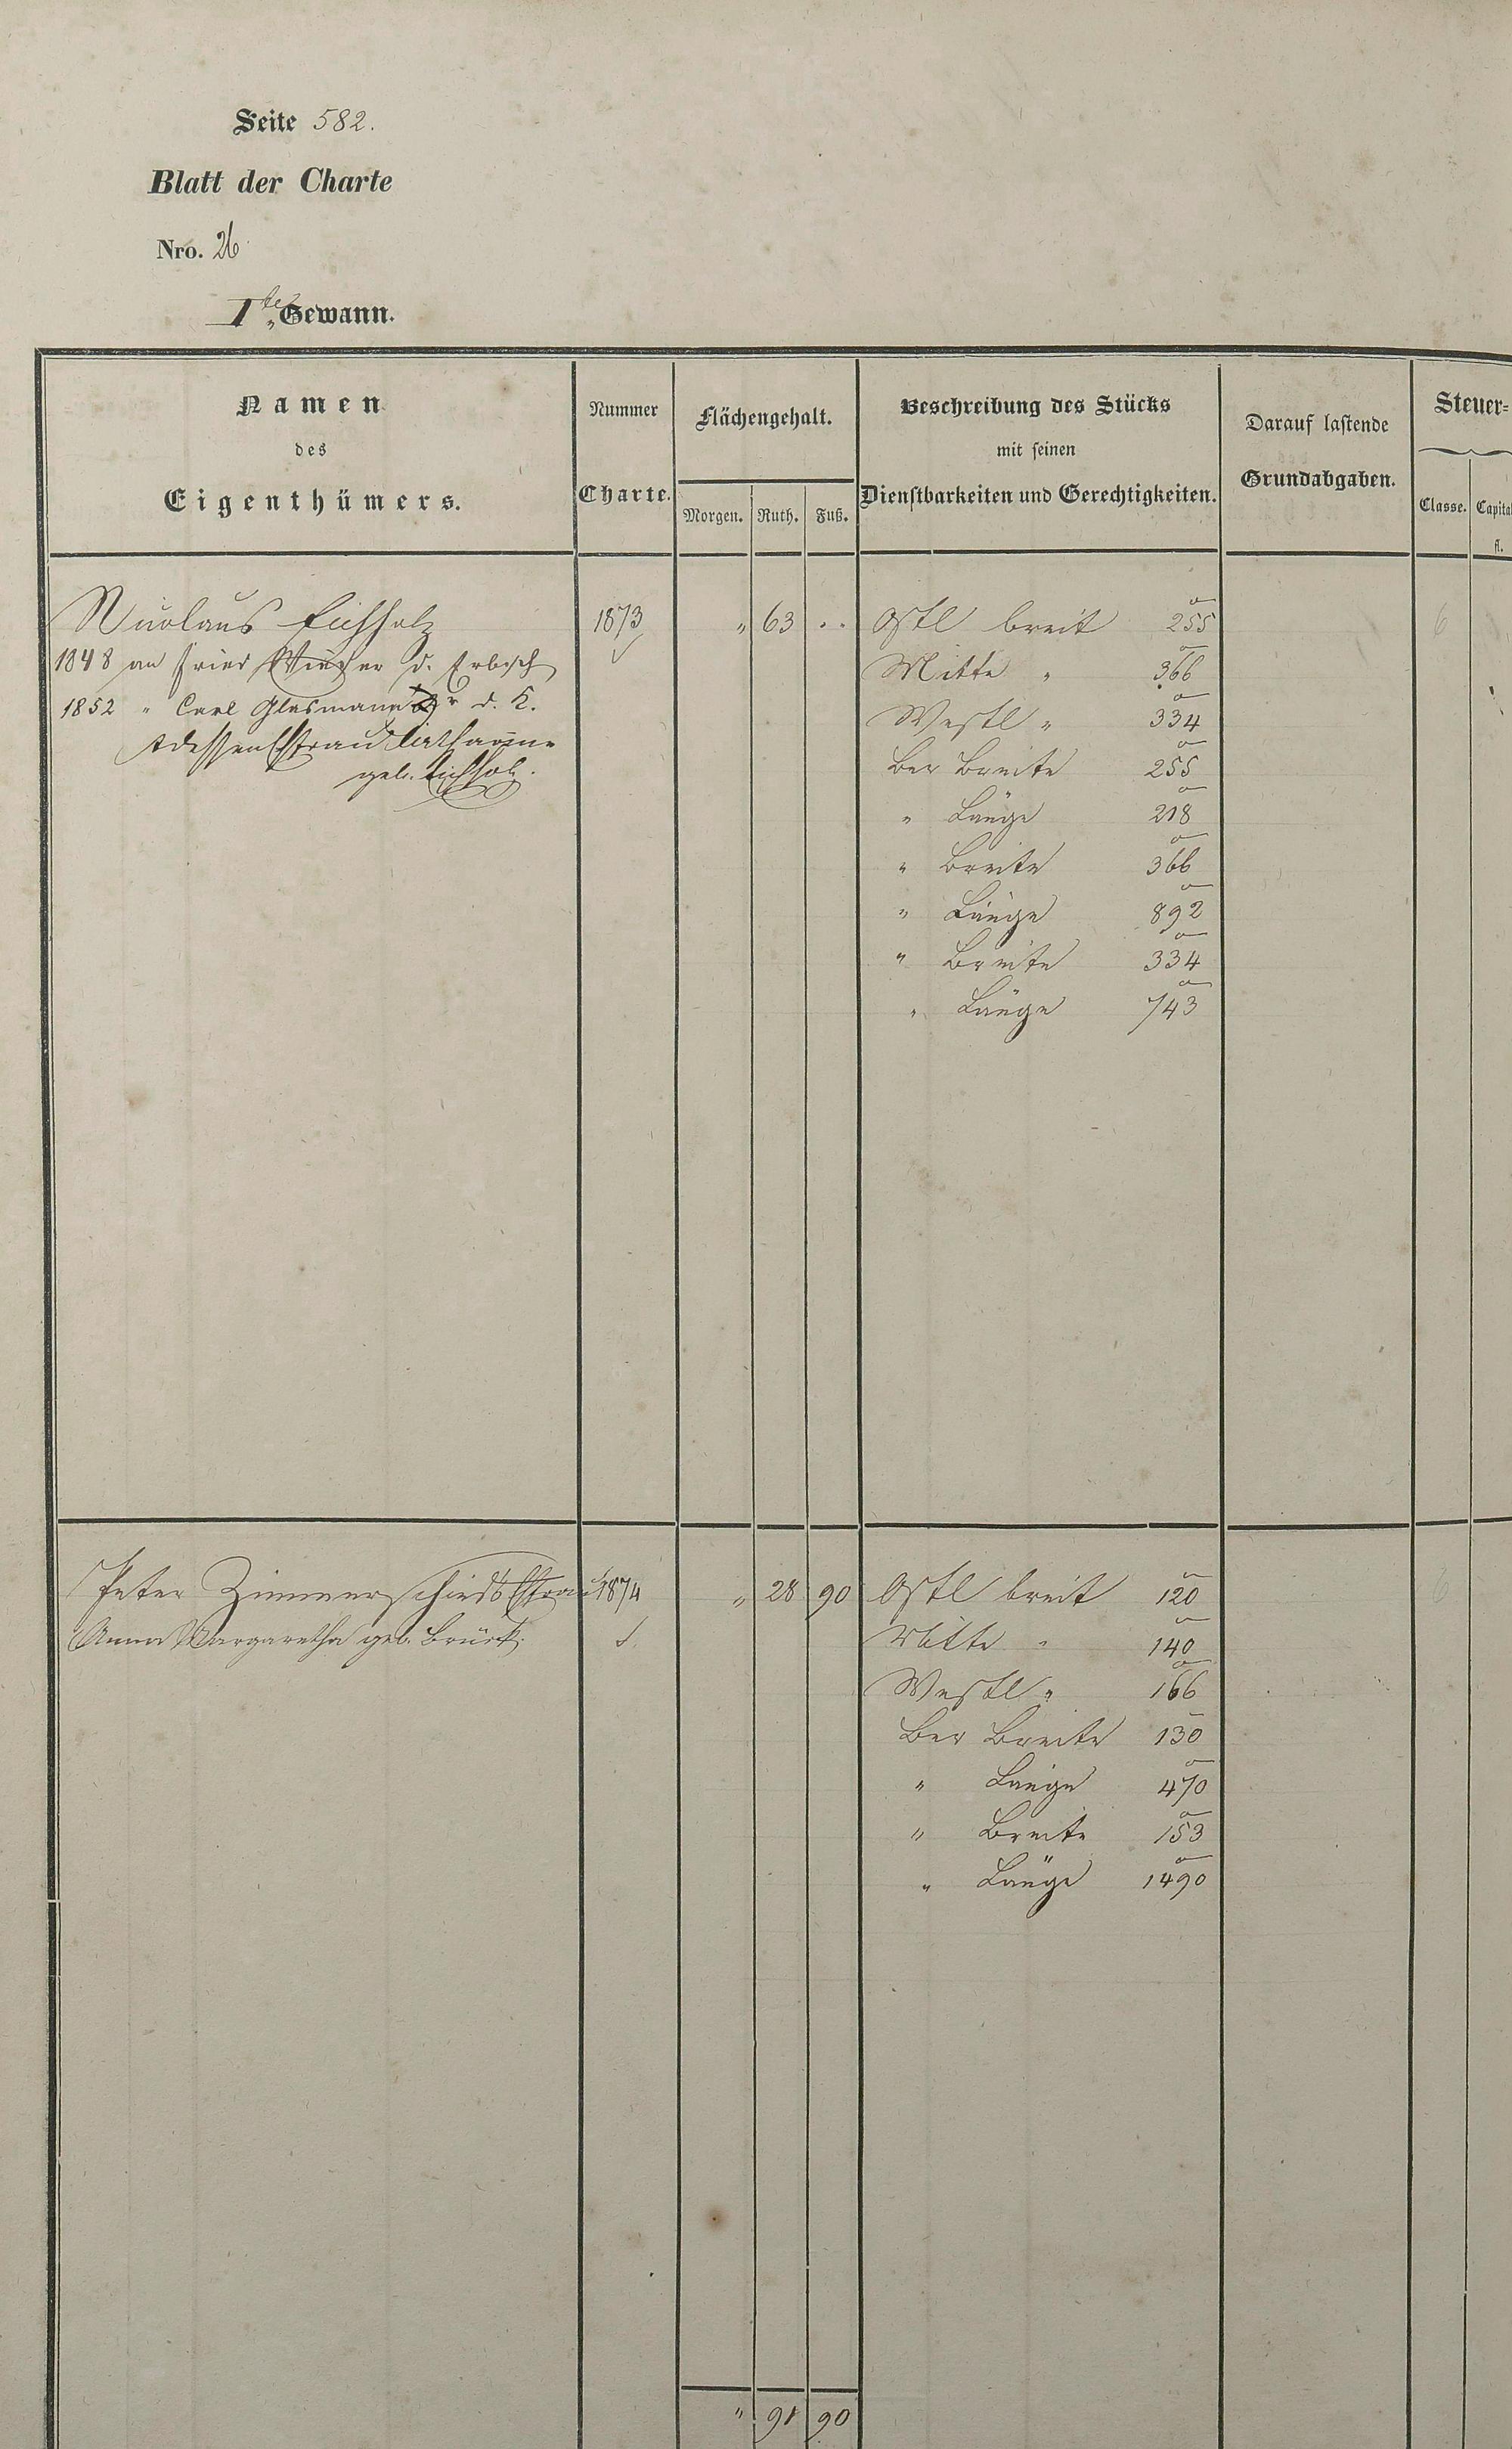 Seite 582.
Blatt der Charte
Nro. 26
1te Gewann.
Namen
des
Eigenthümers.
Nummer
Charte.
Flächengehalt.
Morgen. Ruth. Fuß.
Beschreibung des Stücks
mit seinen
Dienstbarkeiten und Gerechtigkeiten.
Darauf lastende
Grundabgaben.
Steuer=
Classe. Capital
fl.
Nicolaus Eichholz 1873 " 63 .. Östl breit 255 6
1848 an Fried d. Erbsch
Mitte " 366
1852 " Carl Glasmann d. K.
Westl " 334
dessen Ehfrau Catharine
geb. Eichholz.
Ber Breite 255
" Länge 218
" Breite 366
" Länge 892
" Breite 334
" Länge 743
Peter Zimmerschieds Ehfrau 1874 " 28 90 Östl breit 120 6
Anna Margaretha geb. Brück.
Mitte " 140
Westl " 166
Ber Breite 130
" Länge 470
" Breite 153
" Länge 1490
" 91 90